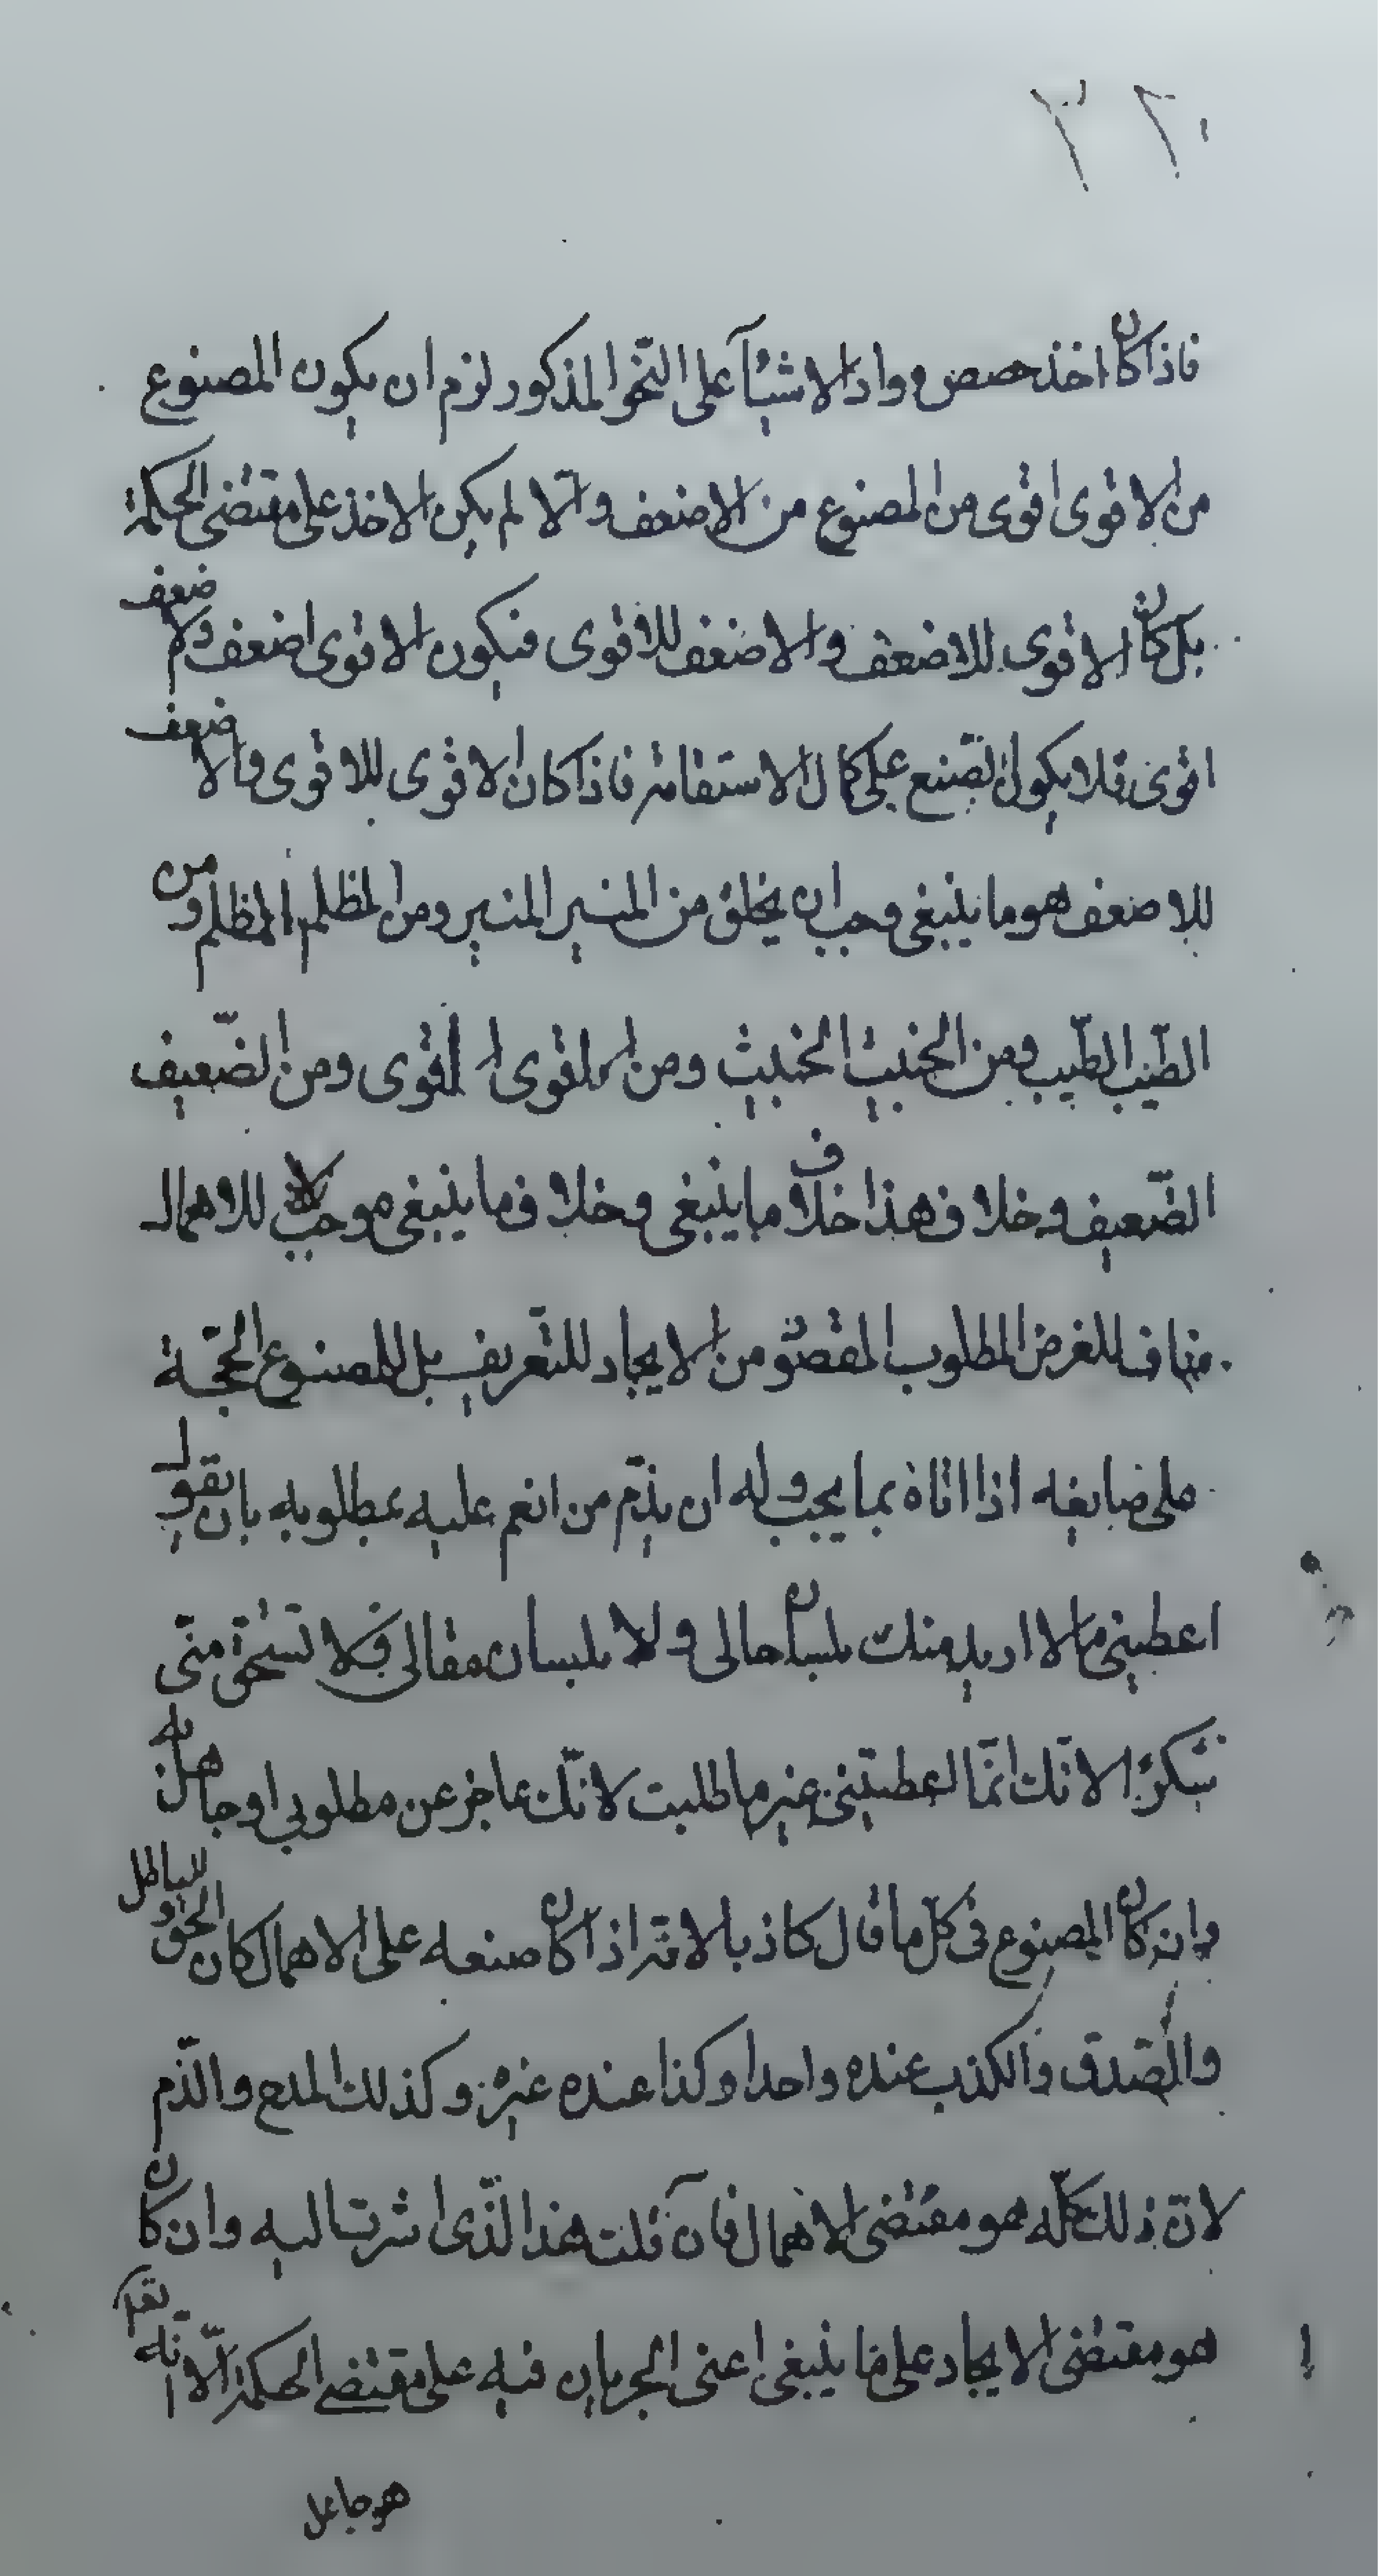 ٣٢
فاذا كان اخذ حصص مواد الاشيآء على النّحو المذكور لزم ان يكون المصنوع
من الاقوى اقوى من المصنوع من الاضعف والّا لم يكن الاخذ على مقتضى الحكمة
بل كان الاقوى للاضعف والاضعف للاقوى فيكون الاقوى اضعف والاضعف
اقوى فلا يكون الصّنع على كمال الاستقامة فاذا كان الاقوى للاقوى والاضعف
للاضعف هو ما ينبغى وجب ان يخلق من المنير المنير ومن المظلم المظلم ومن
الطّيب الطّيب ومن الخبيث الخبيث ومن القوى القوى ومن الضّعيف
الضّعيف وخلاف هذا خلاف ما ينبغى وخلاف ما ينبغى موجب للاهمال
مناف للغرض المطلوب المقصود من الايجاد للتّعريف بل للمصنوع الحجّة
على صانعه اذا اتاه بما يجب وله ان يذمّ من انعم عليه بمطلوبه بان يقول
اعطيتنى ما لا اريد منك بلسان حالى ولا بلسان مقالى فلا تستحقّ منّى
شكرًا لانّك انّما اعطيتنى غير ما طلبت لانّك عاجز عن مطلوبى او جاهل به
وان كان المصنوع فى كلّ ما قال كاذبا لانّه اذا كان صنعه على الاهمال كان الحق والباطل
والصّدق والكذب عنده واحدا وكذا عند غيره وكذلك المدح والذّم
لانّ ذلك كلّه هو مقتضى الاهمال فان قلت هذا الّذى اشرت اليه وان كان
هو مقتضى الايجاد على ما ينبغى اعنى الجريان فيه على مقتضى الحكمة الّا انّه تعالى
هو جاعل